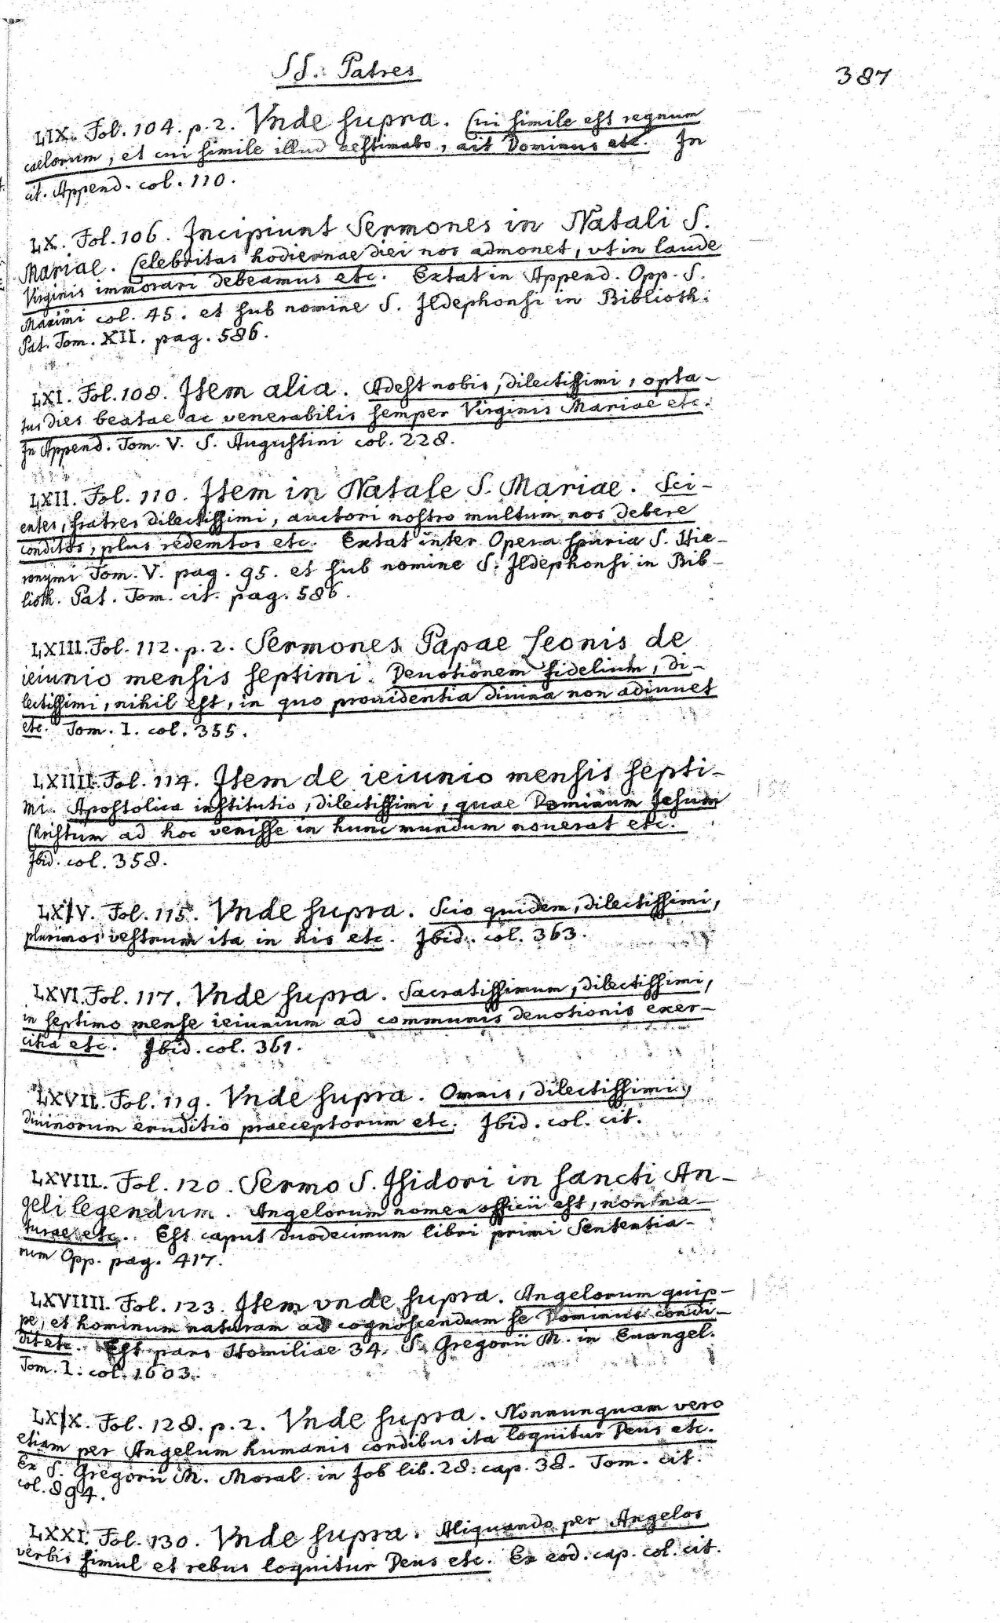 SS. Patres
387
LIX. Fol. 104. p. 2. Vnde supra. Cui simile est regnum
caelorum, et cui simile illud aestimabo, ait Dominus etc. In
cit. Append. col. 110.
LX. Fol. 106. Incipiunt Sermones in Natali S.
Mariae. Celebritas hodiernae diei nos admonet, vt in laude
Virginis immorari debeamus etc. Extat in Append. Opp. S.
Maximi col. 45. et sub nomine S. Ildephonsi in Biblioth.
Pat. Tom. XII. pag. 586.
LXI. Fol. 108. Item alia. Adest nobis, dilectissimi, opta-
tus dies beatae ac venerabilis semper Virginis Mariae etc.
In Append. Tom. V. S. Augustini col. 228.
LXII. Fol. 110. Item in Natale S. Mariae. Sci-
entes, fratres dilectissimi, auctori nostro multum nos debere
conditos, plus redemtos etc. Extat inter Opera spuria S. Hie-
ronymi Tom. V. pag. 95. et sub nomine S. Ildephonsi in Bib-
lioth. Pat. Tom. cit. pag. 586.
LXIII. Fol. 112. p. 2. Sermones Papae Leonis de
ieiunio mensis septimi. Deuotionem fidelium, di-
lectissimi, nihil est, in quo prouidentia diuina non adiuuet
etc. Tom. I. col. 355.
LXIIII. Fol. 114. Item de ieiunio mensis septi-
mi. Apostolica institutio, dilectissimi, quae Dominum Iesum
Christum ad hoc venisse in hunc mundum nouerat etc.
Ibid. col. 358.
LXV. Fol. 115. Vnde supra. Scio quidem, dilectissimi,
plurimos vestrum ita in his etc. Ibid. col. 363.
LXVI. Fol. 117. Vnde supra. Sacratissimum, dilectissimi,
in septimo mense ieiunium ad communis deuotionis exer-
citia etc. Ibid. col. 361.
LXVII. Fol. 119. Vnde supra. Omnis, dilectissimi,
diuinorum eruditio praeceptorum etc. Ibid. col. cit.
LXVIII. Fol. 120. Sermo S. Isidori in sancti An-
geli legendum. Angelorum nomen officii est, non na-
turae etc. Est caput duodecimum libri primi Sententia-
rum Opp. pag. 417.
LXVIIII. Fol. 123. Item vnde supra. Angelorum quip-
pe, et hominum naturam ad cognoscendum se Dominus condi-
dit etc. Est pars Homiliae 34. S. Gregorii M. in Euangel.
Tom. I. col. 1603.
LXX. Fol. 128. p. 2. Vnde supra. Nonnunquam vero
etiam per Angelum humanis cordibus ita loquitur Deus etc.
Ex S. Gregorii M. Moral. in Job lib. 28. cap. 38. Tom. cit.
col. 894.
LXXI. Fol. 130. Vnde supra. Aliquando per Angelos
verbis simul et rebus loquitur Deus etc. Ex eod. cap. col. cit.